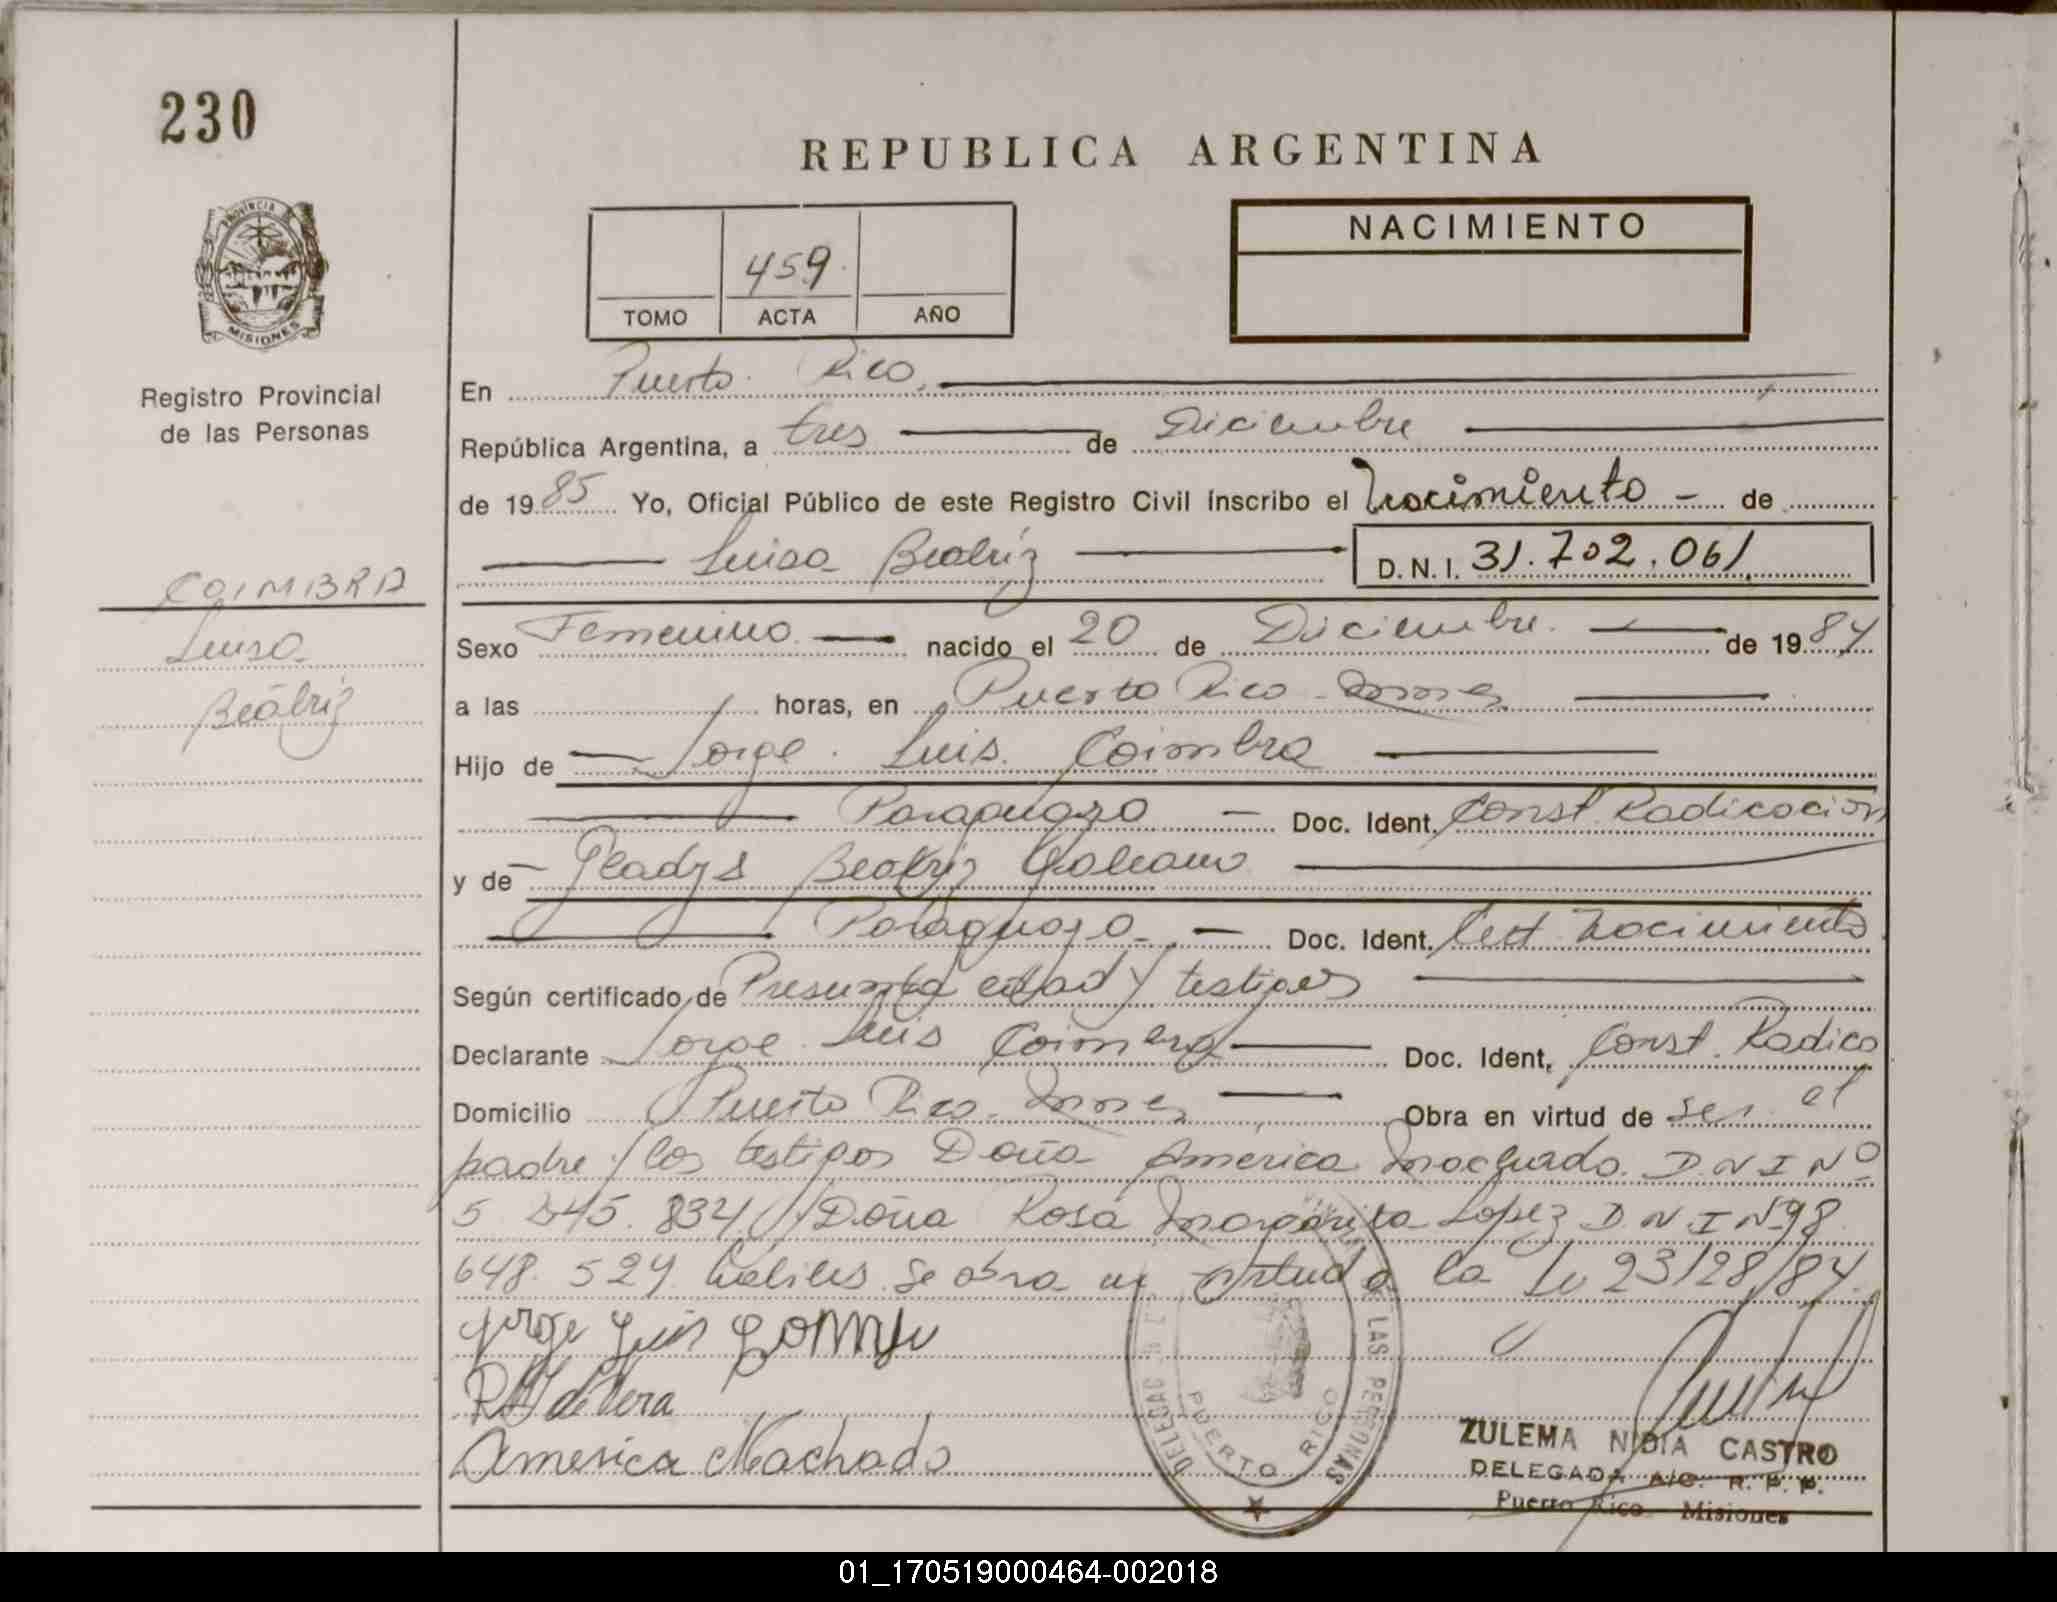 230
REPUBLICA ARGENTINA
PROVINCIA DE
MISIONES
Registro Provincial
de las Personas
459
TOMO ACTA AÑO
NACIMIENTO
En Puerto Rico
República Argentina, a tres de Diciembre
de 1985 Yo, Oficial Público de este Registro Civil inscribo el Nacimiento de
Luisa Beatríz D.N.I. 31.702.061
COIMBRA
Luisa
Beatriz
Sexo Femenino nacido el 20 de Diciembre de 1984
a las horas, en Puerto Rico - Mnes
Hijo de Jorge Luis Coimbra
Paraguayo Doc. Ident. Const Radicacion
y de Gladys Beatriz Galeano
Paraguaya Doc. Ident. Cert Nacimiento
Según certificado de Presunta edad y testigos
Declarante Jorge Luis Coimbra Doc. Ident, Const. Radica
Domicilio Puerto Rico - Mnes Obra en virtud de ser el
padre y los testigos Doña America Machado D.N.I Nº
5 834 y Doña Rosa Margarita Lopez D.N.I Nº 8
648.524 habiles se obra en virtud a la 23128/84
Jorge Luis
de Vera
America Machado
DE LAS PERSONAS
PUERTO RICO
ZULEMA NIDIA CASTRO
DELEGADA A/C. R. P. P.
Puerto Rico - Misiones
01_170519000464-002018